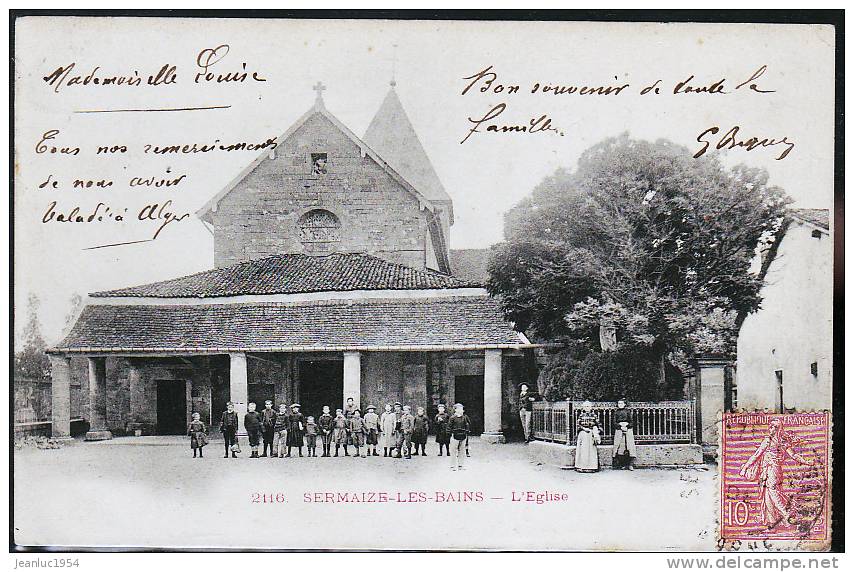 Mademoiselle Louise
Tous nos remerciements
de nous avoir
baladé à Alger
Bon souvenir de toute la
famille
2116. SERMAIZE-LES-BAINS — L'Eglise
REPUBLIQUE FRANÇAISE
10
jeanluc1954
http://www.delcampe.net